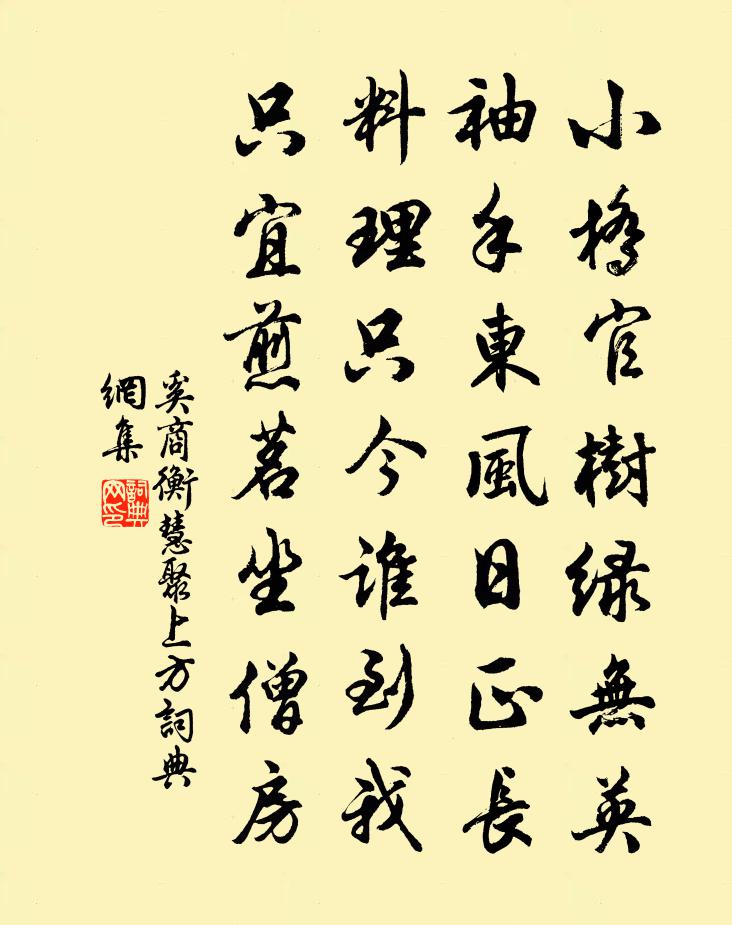 小橋官樹綠無英
袖手東風日正長
料理只今誰到我
只宜煎茗坐僧房
奚商衡慧聚上方詞典
網集
詞典網印